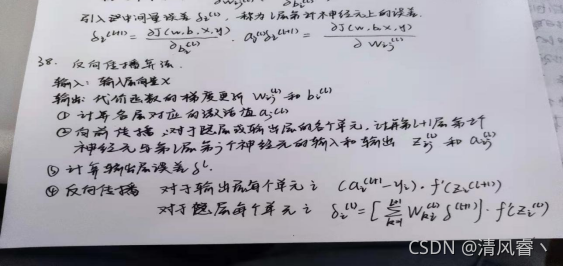 引入过中间量误差 δᵢ⁽ˡ⁾, 称为 l层第i个神经元上的误差.
δᵢ⁽ˡ⁺¹⁾ = ∂J(w,b,x,y) / ∂bᵢ⁽ˡ⁾ . aⱼ⁽ˡ⁾δᵢ⁽ˡ⁺¹⁾ = ∂J(w,b,x,y) / ∂Wᵢⱼ⁽ˡ⁾
38. 反向传播算法.
输入: 输入层向量x
输出: 代价函数的梯度更新 wᵢⱼ⁽ˡ⁾ 和 bᵢ⁽ˡ⁾
① 计算各层对应的激活值 aⱼ⁽ˡ⁾
② 向前传播:对于隐层或输出层的各个单元,计算第l+1层第i个
神经元与第l层第j个神经元的输入和输出 zᵢⱼ⁽ˡ⁾ 和 aᵢⱼ⁽ˡ⁾
③ 计算输出层误差 δᴸ.
④ 反向传播 对于输出层每个单元i (aᵢ⁽ˡ⁺¹⁾-yᵢ)·f'(zᵢ⁽ˡ⁺¹⁾)
对于隐层每个单元i δᵢ⁽ˡ⁾=[∑ Wₖᵢ⁽ˡ⁾ δ⁽ˡ⁺¹⁾]·f'(zᵢ⁽ˡ⁾)
CSDN @清风睿丶